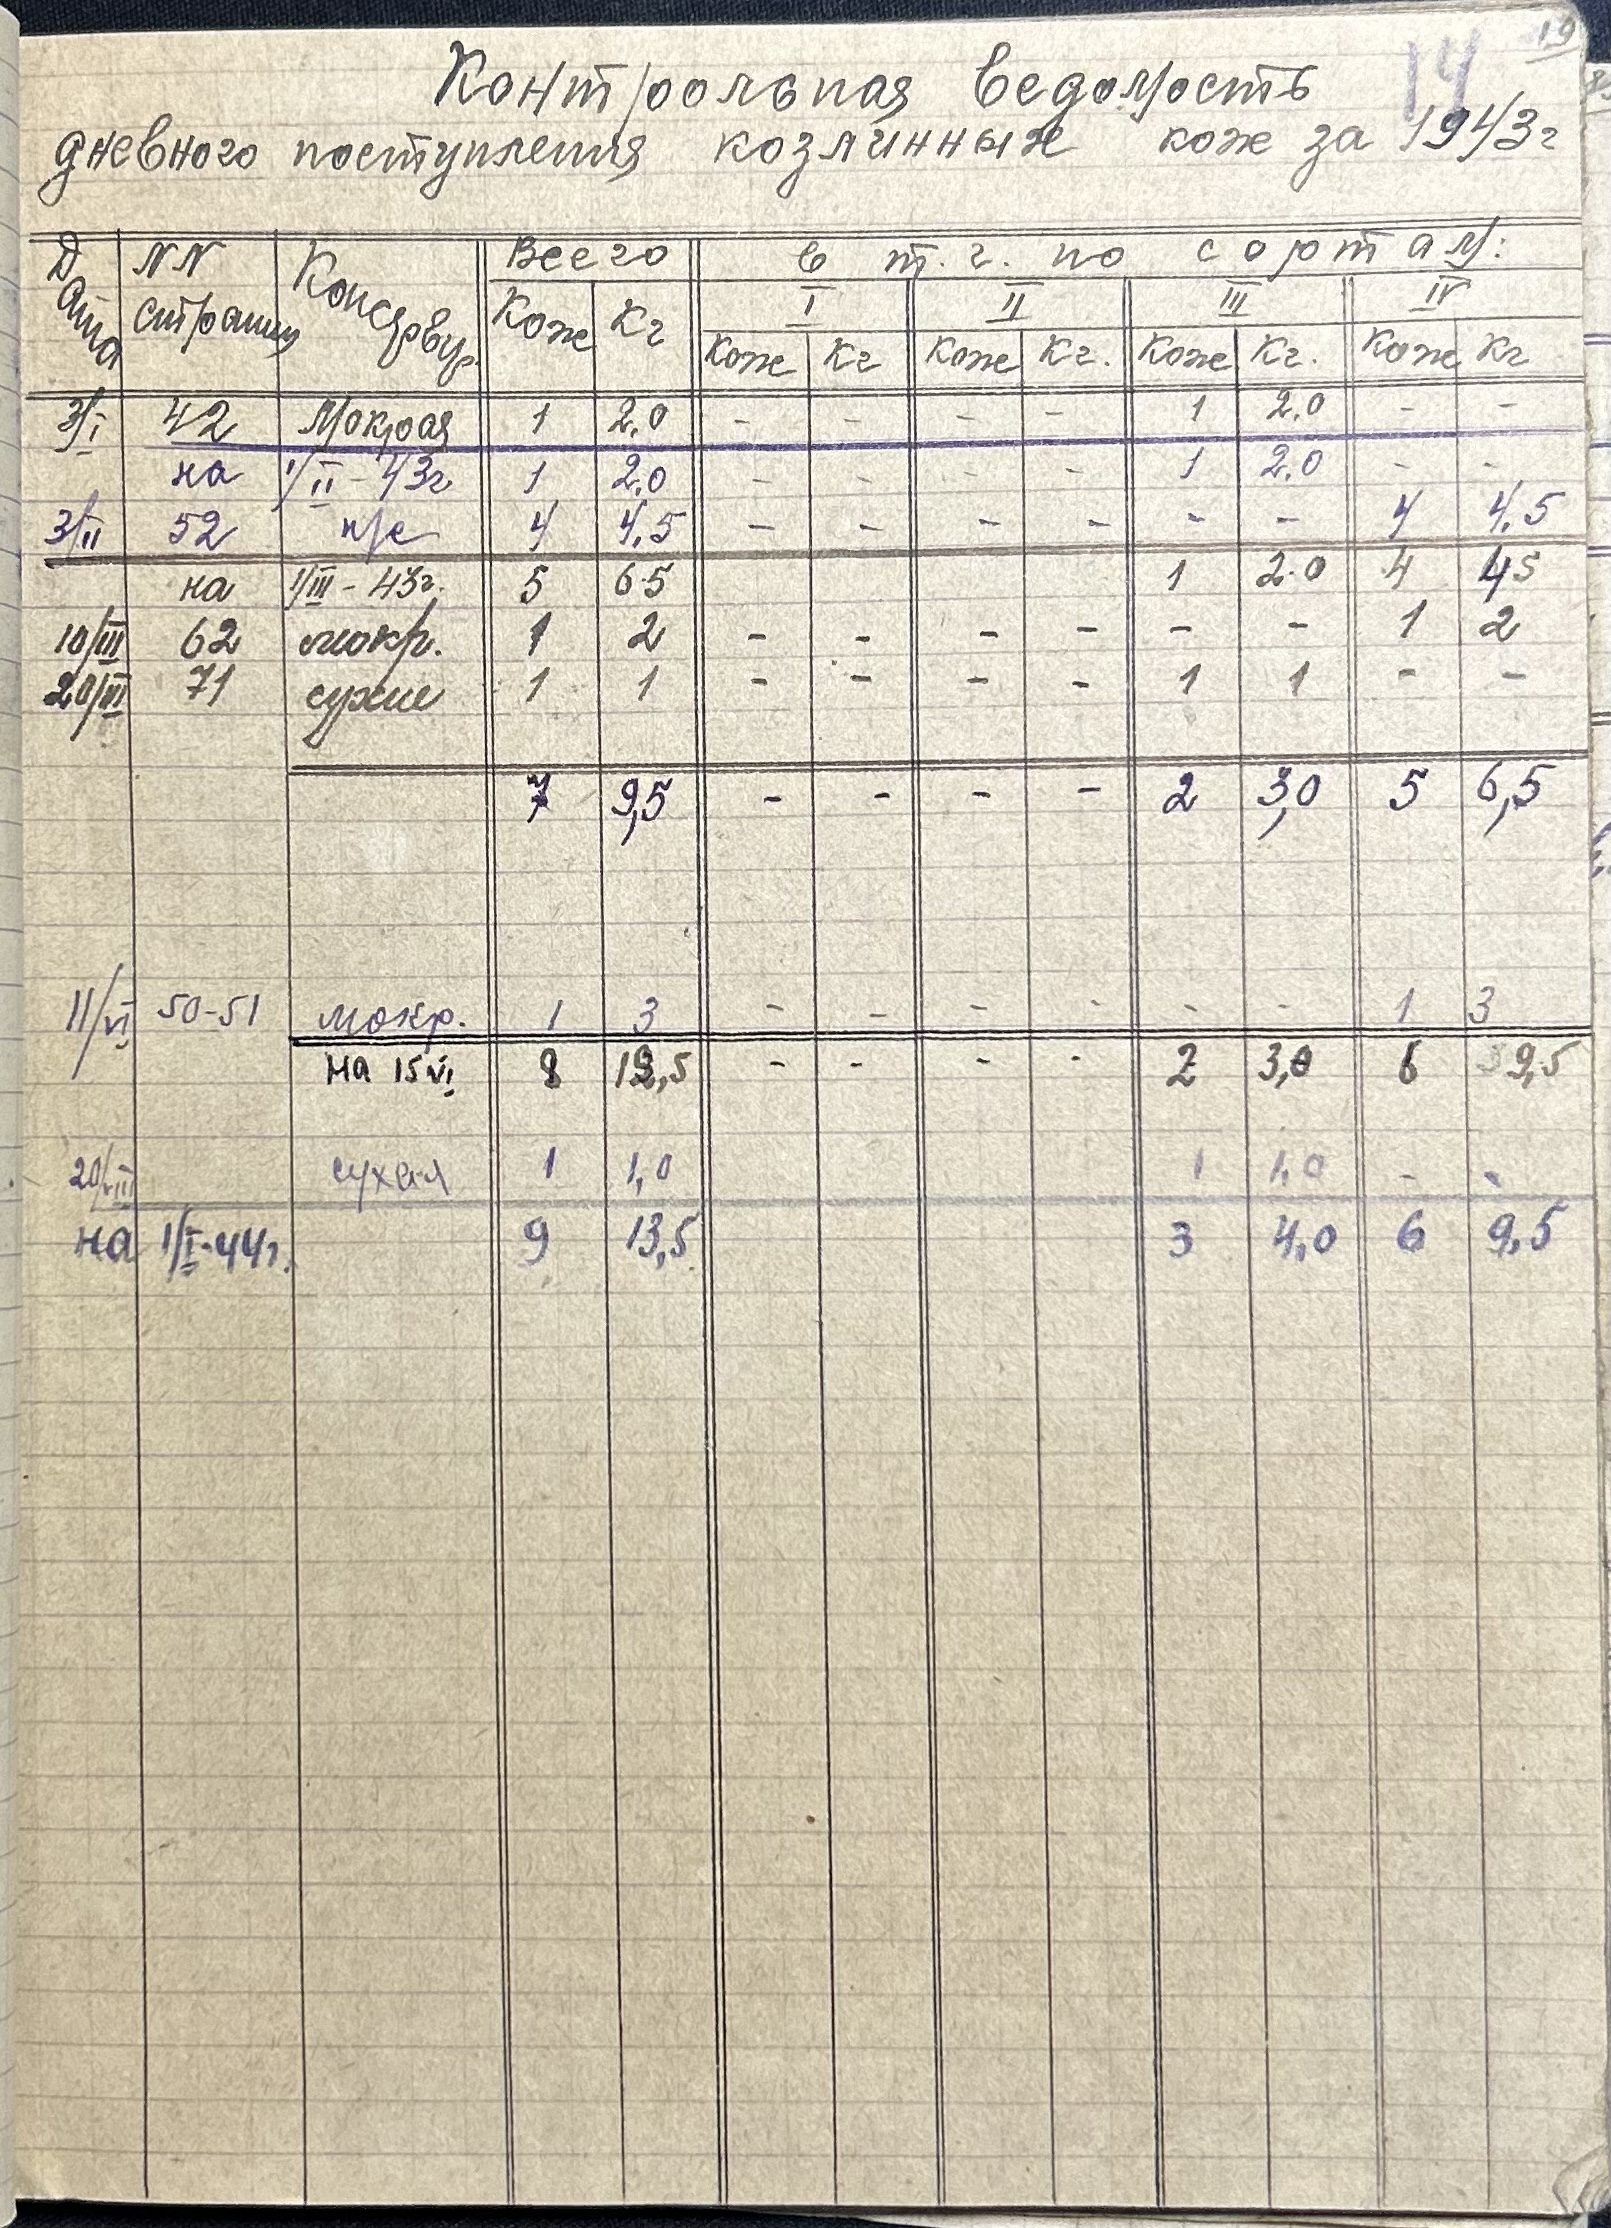 19
14
Контрольная ведомость
дневного поступления козлинных кож за 1943г
Дата NN страниц Консервир. Всего в т.ч. по сортам:
I II III IV
Кож Кг Кож Кг Кож Кг. Кож Кг. Кож Кг
3/I 42 Мокрая 1 2,0 - - - - 1 2,0 - -
на 1/II-43г 1 2,0 - - - - 1 2,0 - -
3/II 52 н/с 4 4,5 - - - - - - 4 4,5
на 1/III-43г. 5 6.5 1 2.0 4 45
10/III 62 мокр. 1 2 - - - - - - 1 2
20/VI 71 сухие 1 1 - - - - 1 1 - -
7 9,5 - - - - 2 3,0 5 6,5
11/VI 50-51 мокр. 1 3 - - - - - - 1 3
на 15 VI 8 12,5 - - - - 2 3,0 6 9,5
20/VIII сухая 1 1,0 1 1,0 - -
на 1/I-44г. 9 13,5 3 4,0 6 9,5